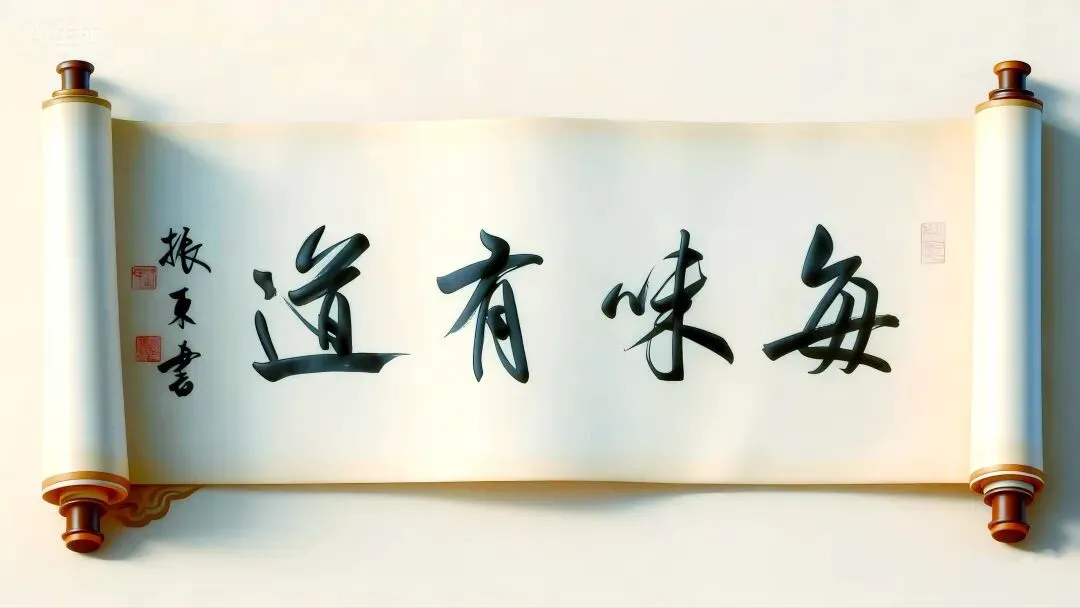 每味有道
振东書